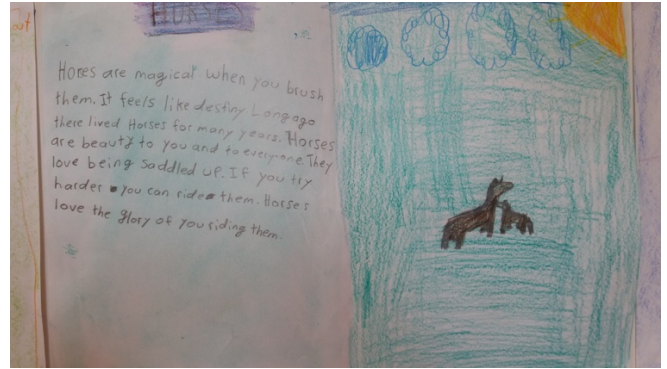 HORSES
Hores are magical when you brush
them. It feels like destiny Longago
there lived Horses for many years. Horses
are beauty to you and to everyone. They
love being saddled up. If you try
harder you can ride them. Horses
love the glory of you riding them.